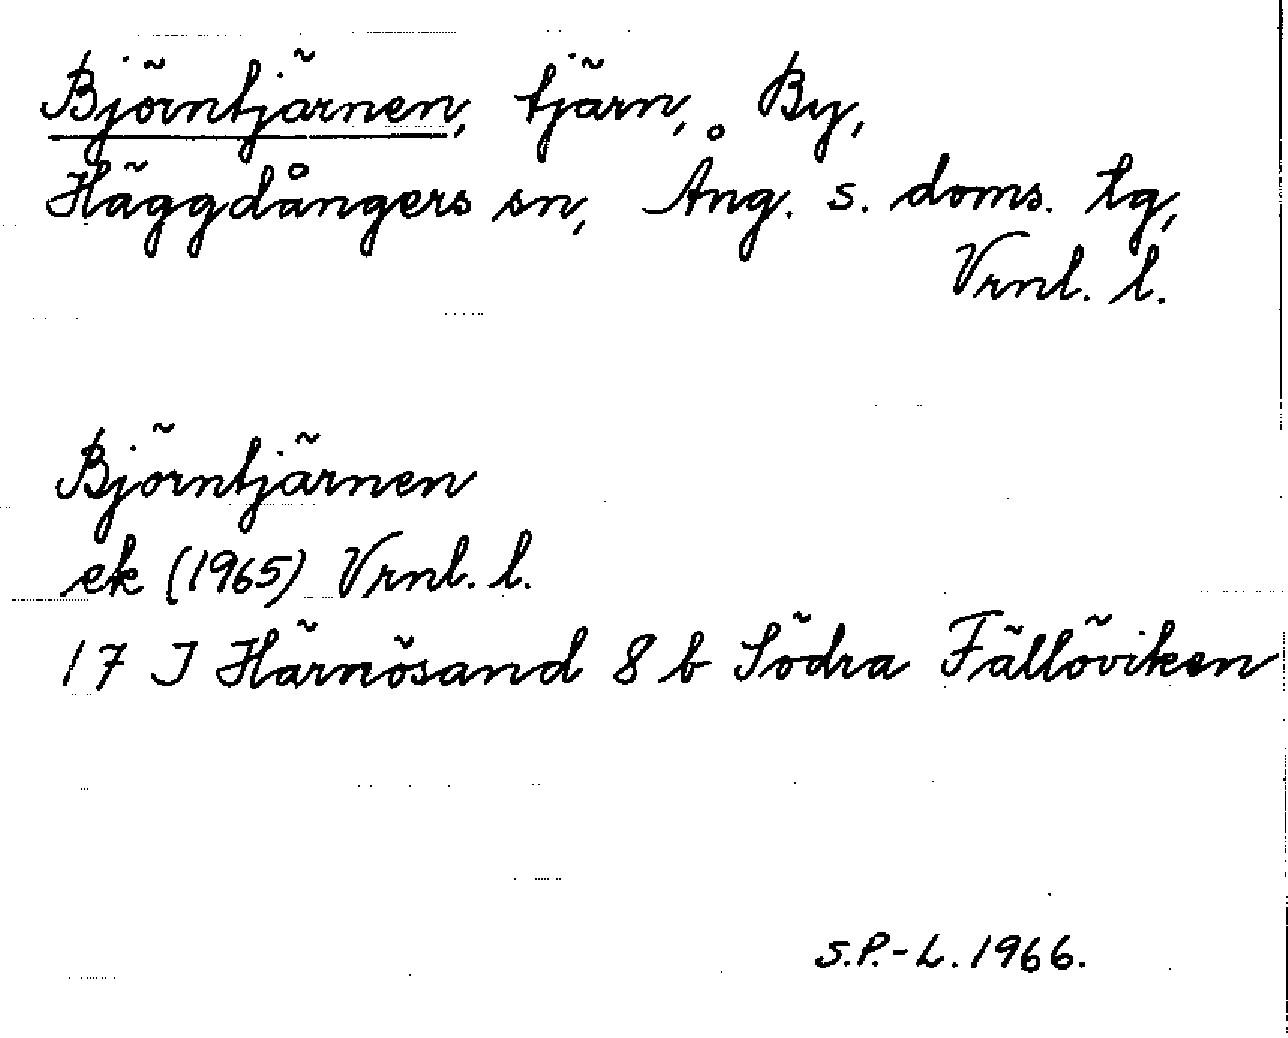 Björntjärnen, tjärn, By,
Häggdångers sn, Ång. s. doms. tg,
Vrnl. l.
Björntjärnen
ek (1965) Vrnl. l.
17 J Härnösand 8 b Södra Fällöviken
S.P.-L. 1966.